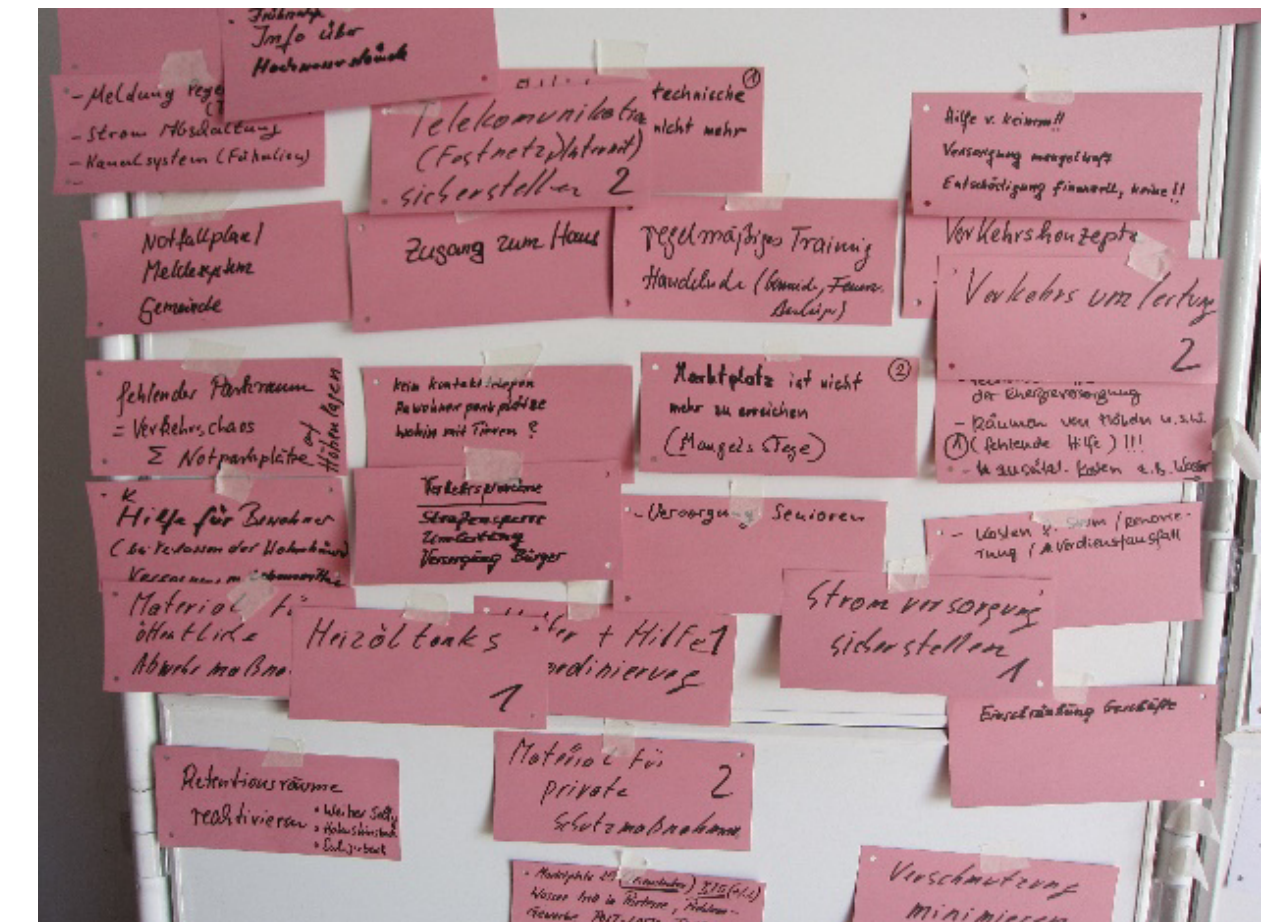 Info über
- Meldung Pege
- Strom Abschaltung
- Kanalsystem (Fäkalien)
technische ①
nicht mehr
Telekomunikation
(Festnetz, Internet)
sicherstellen 2
Hilfe v. keinem!!
Versorgung mangelhaft
Entschädigung finanziell, keine!!
Notfallplan/
Meldesystem
Gemeinde
Zugang zum Haus
regelmäßiges Training
Handelnde (Gemeinde, Feuerw.
Verkehrskonzepte
Verkehrsumleitung
2
fehlender Parkraum
= Verkehrschaos
Σ Notparkplätze auf Höhenlagen
kein Kontakt kriegen
Anwohnerparkplätze
wohin mit Tieren?
Marktplatz ist nicht ②
mehr zu erreichen
(Mangels Stege)
der Energieversorgung
- Räumen von Möbeln u.s.w.
① (fehlende Hilfe) !!!
zusätzl. Kosten z.B. Wasser
Hilfe für Bewohner
(bei Verlassen der Wohnhäuser
Straßensperre
Umleitung
Versorgung Bürger
- Versorgung Senioren
- Kosten f. Strom / Renovie-
rung / Verdienstausfall
Material fü
öffentliche
Abwehrmaßna
Heizöltanks
1
+ Hilfe 1
ordinierung
Stromversorgung
sicherstellen
1
Einschränkung Geschäfte
Retentionsräume
reaktivieren
• Weiher
Material für
private 2
Schutzmaßnahmen
Verschmutzung
minimieren